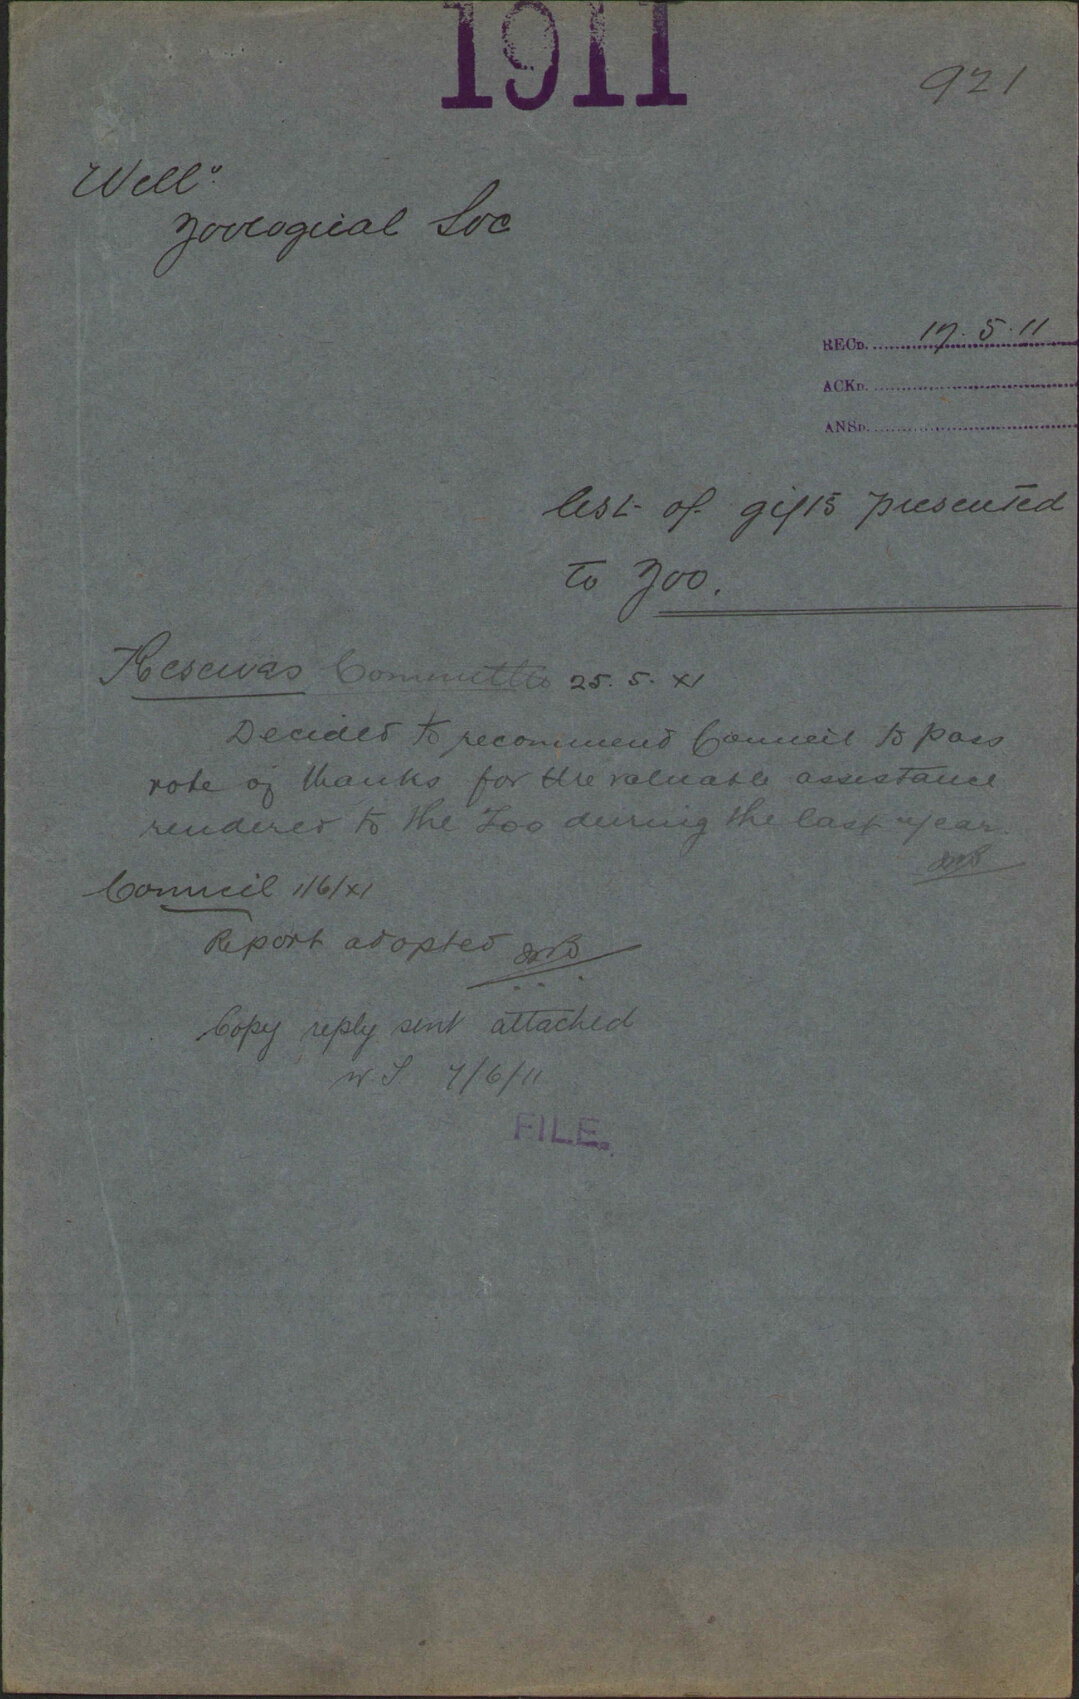 1911
921
Well"
Zoological Soc
RECD. 17.5.11
ACKD.
ANSD.
List of gifts presented
to Zoo.
Reserves Committee 25.5.XI
Decided to recommend Council to pass
vote of thanks for the valuable assistance
rendered to the Zoo during the last year.
Council 1/6/XI
Report adopted
Copy reply sent attached
7/6/11
FILE.